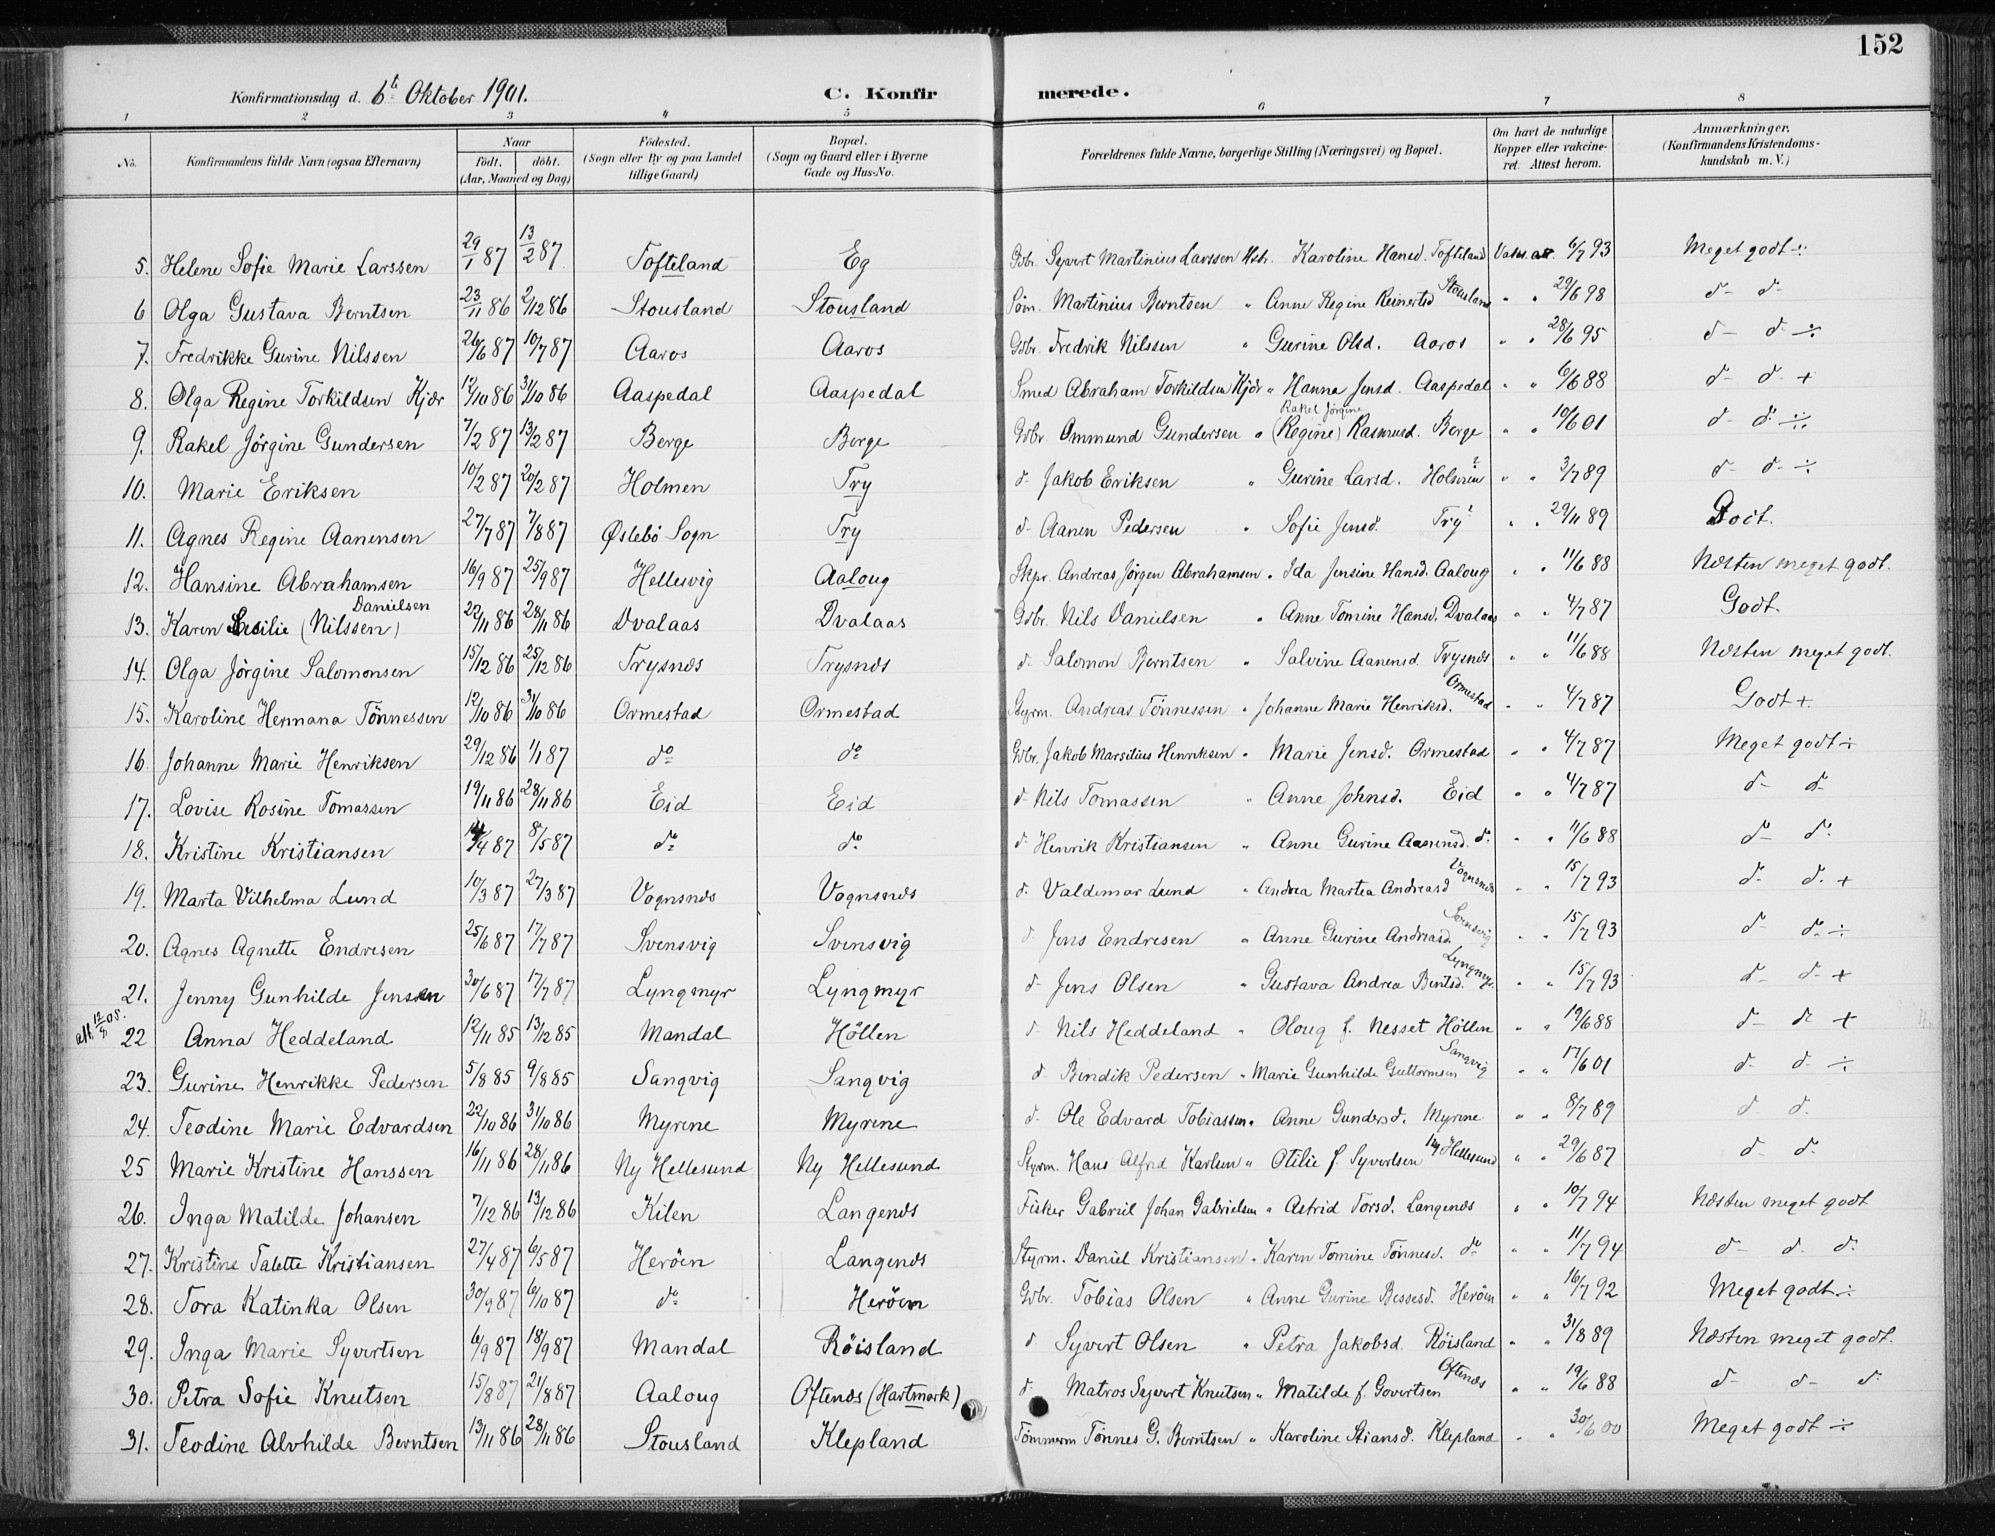 152
Konfirmationsdag d. 6te Oktober 1901. C. Konfirmerede.
1 2 3 4 5 6 7 8
No. Konfirmandens fulde Navn (ogsaa Efternavn) Naar födt. döbt. (Aar, Maaned og Dag) Födested. (Sogn eller By og paa Landet tillige Gaard) Bopæl. (Sogn og Gaard eller i Byerne Gade og Hus-No. Forældrenes fulde Navne, borgerlige Stilling (Næringsvei) og Bopæl. Om havt de naturlige Kopper eller vakcineret. Attest herom. Anmærkninger. (Konfirmandens Kristendomskundskab m. V.)
5. Helene Sofie Marie Larssen 29/1 87 13/2 87. Tofteland Eg Gdbr. Syvert Martinius Larssen Hstr. Karoline Hansd. Tofteland Vaks. att. 6/7 93 Meget godt ÷
6 Olga Gustava Berntsen 23/11 86 2/12 86 Stousland Stousland Søm. Martinius Berntsen " Anne Regine Reinertsd Stousland " " 29/6 98 d- d-
7. Fredrikke Gurine Nilssen 26/6 87 10/7 87 Aaros Aaros Gdbr. Fredrik Nilssen " Gurine Olsd. Aaros " " 28/6 95 d- d- ÷
8. Olga Regine Torkildsen Kjær 17/10 86 31/10 86 Aaspedal Aaspedal Smed Abraham Torkildsen Kjær " Hanna Jensd. Aaspedal " " 6/6 88 d- d- +
9. Rakel Jörgine Gundersen 7/2 87 13/2 87 Berge Berge Gdbr. Ommund Gundersen " Rakel Jörgine (Regine) Rasmusd. Berge " " 10/6 01 d- d- ÷
10. Marie Eriksen 10/2 87 20/2 87 Holmen Try d- Jakob Eriksen " Gurine Larsd. Holmen " " 3/7 89 d- d- ÷
11. Agnes Regine Aanensen 27/7 87 7/8 87 Øslebö Sogn Try d- Aanen Pedersen " Sofie Jensd. Try " " 29/11 89 Godt.
12. Hansine Abrahamsen 16/9 87 25/9 87 Hellesvig Aaloug Skpr. Andreas Jörgen Abrahamsen " Ida Jensine Hansd. Aaloug " " 11/6 88 Næsten meget godt.
13. Karen Cecilie (Nilssen) Danielsen 22/11 86 28/11 86 Dvalaas Dvalaas Gdbr. Nils Danielsen " Anne Tomine Hansd. Dvalaas " " 4/7 87 Godt.
14. Olga Jörgine Salomonsen 15/12 86 25/12 86 Trysnæs Trysnæs d- Salomon Berntsen " Salvine Aanensd. Trysnæs " " 11/6 88 Næsten meget godt.
15. Karoline Hermana Tönnessen 12/10 86 31/10 86 Ormestad Ormestad Styrm. Andreas Tönnessen " Johanne Marie Henriksd. Ormestad " " 4/7 87 Godt +.
16. Johanne Marie Henriksen 29/12 86 1/1 87 do do Gdbr. Jakob Marsilius Henriksen " Marie Jensd. Ormestad " " 4/7 87 Meget godt ÷
17. Lovise Rosine Tomassen 19/11 86 28/11 86 Eid Eid d- Nils Tomassen " Anne Johnsd. Eid " " 4/7 87 d- d-
18. Kristine Kristiansen 14/4 87 8/5 87 do do d- Henrik Kristiansen " Anne Gurine Aanensd. do " " 11/6 88 d- d-
19. Marta Vilhelma Lund 10/3 87 27/3 87 Vognsnæs Vognsnæs d. Valdemar Lund " Andrea Martea Andreasd Vognsnæs " " 15/7 93 d- d. +
20. Agnes Agnette Endresen 25/6 87 17/7 87 Svensvig Svensvig d. Jens Endresen " Anne Gurine Andreasd. Svensvig " " 15/7 93 d- d. ÷
21. Jenny Gunhilde Jenssen 30/6 87 17/7 87 Lyngmyr Lyngmyr d- Jens Olsen " Gustava Andrea Berntsd. Lyngmyr. " " 15/7 93 d- d- +
att. 12/8 05. 22 Anna Heddeland 12/11 85 13/12 85 Mandal Höllen d- Nils Heddeland " Oloug f. Nesset Höllen " " 19/6 88 d- d- +
23. Gurine Henrikke Pedersen 5/8 85 9/8 85 Sangvig Sangvig d- Bendik Pedersen " Marie Gunhilde Guttormsen Sangvig " " 17/6 01 d- d- ÷
24. Teodine Marie Edvardsen 22/10 86 31/10 86 Myrene Myrene d. Ole Edvard Tobiassen " Anne Gundersd. Myrene " " 8/7 89 d- d.
25 Marie Kristine Hanssen 16/11 86 28/11 86 Ny Hellesund Ny Hellesund Styrm. Hans Alfred Karlsen " Otilie f. Syvertsen Ny Hellesund " " 29/6 87 d- d-
26. Inga Matilde Johansen 7/12 86 13/12 86 Kilen Langenæs Fisker Gabriel Johan Gabrielsen " Astrid Torsd. Langenæs " " 10/7 94 Næsten meget godt
27. Kristine Talette Kristiansen 27/4 87 6/5 87 Heröen Langenæs Styrm. Daniel Kristiansen " Karen Tomine Tönnesd. do " " 11/7 94 d- d. d.
28. Tora Katinka Olsen 30/9 87 6/10 87 do Heröen Gdbr. Tobias Olsen " Anne Gurine Bessesd. Heröen " " 16/7 92 Meget godt ÷
29. Inga Marie Syvertsen 6/9 87 18/9 87 Mandal Röisland d Syvert Olsen " Petra Jakobsd. Röisland " " 31/8 89 Næsten meget godt.
30. Petra Sofie Knutsen 15/8 87 21/8 87 Aaloug Oftenæs (Hartmark) d. Matros Syvert Knutsen " Matilde f. Govertsen Oftenæs " " 19/6 88 d- d- d-
31. Teodine Alvhilde Berntsen 13/11 86 28/11 86 Stousland Klepland Tömmerm Tönnes G. Berntsen " Karoline Stiansd. Klepland " " 30/6 00 Meget godt ÷